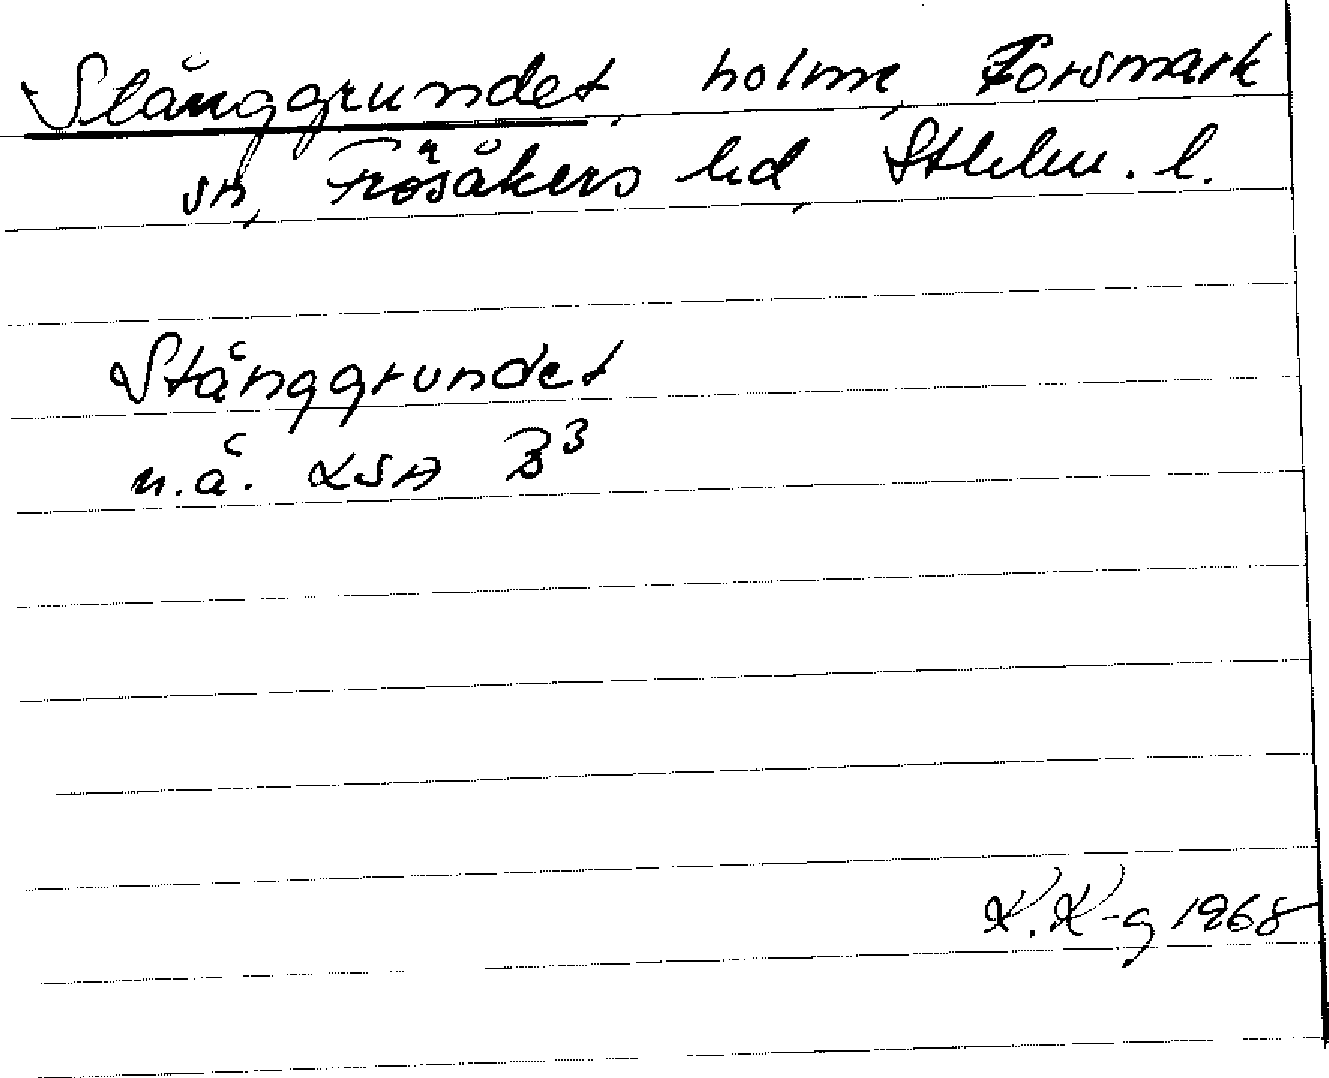 Stånggrundet, holme, Forsmark
sn, Frösåkers hd, Sthlm. l.
Stånggrundet
n.å. LSA B³
K. K-g 1968